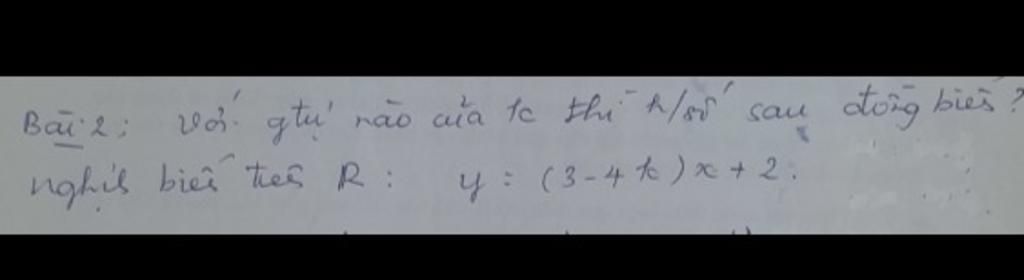 Bài 2: Với gtrị nào của k thì h/số sau đồng biến?
nghịch biến trên R: y = (3 - 4k)x + 2.